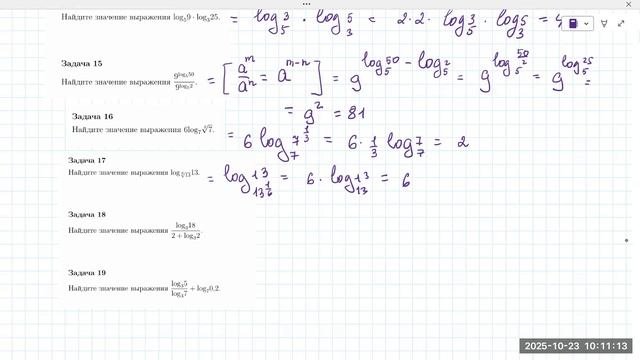 Найдите значение выражения log₅9 · log₃25. = log₅3² · log₃5² = 2·2· log₅3 · log₃5 = 4
Задача 15
Найдите значение выражения 9^(log₅50) / 9^(log₅2). = [ aᵐ/aⁿ = aᵐ⁻ⁿ ] = 9^(log₅50 − log₅2) = 9^(log₅(50/2)) = 9^(log₅25) =
= 9² = 81
Задача 16
Найдите значение выражения 6log₇∛7. = 6 log₇7^(1/3) = 6 · 1/3 log₇7 = 2
Задача 17
Найдите значение выражения log_(⁶√13)13. = log_(13^(1/6))13 = 6 · log₁₃13 = 6
Задача 18
Найдите значение выражения log₃18 / (2 + log₃2).
Задача 19
Найдите значение выражения log₃5 / log₃7 + log₇0,2.
2025-10-23 10:11:13